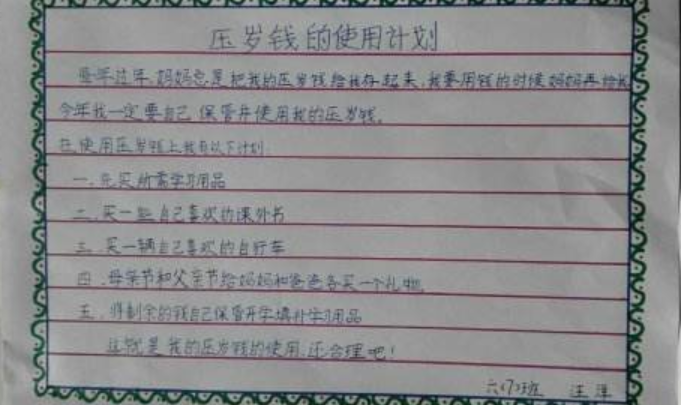 压岁钱的使用计划
每年过年,妈妈总是把我的压岁钱给我存起来,我要用钱的时候妈妈再给我
今年我一定要自己保管并使用我的压岁钱。
在使用压岁钱上我有以下计划:
一、先买所需学习用品
二、买一些自己喜欢的课外书
三、买一辆自己喜欢的自行车
四、母亲节和父亲节给妈妈和爸爸各买一个礼物。
五、将剩余的钱自己保管开学填补学习用品
这就是我的压岁钱的使用,还合理吧!
六(7)班 汪洋